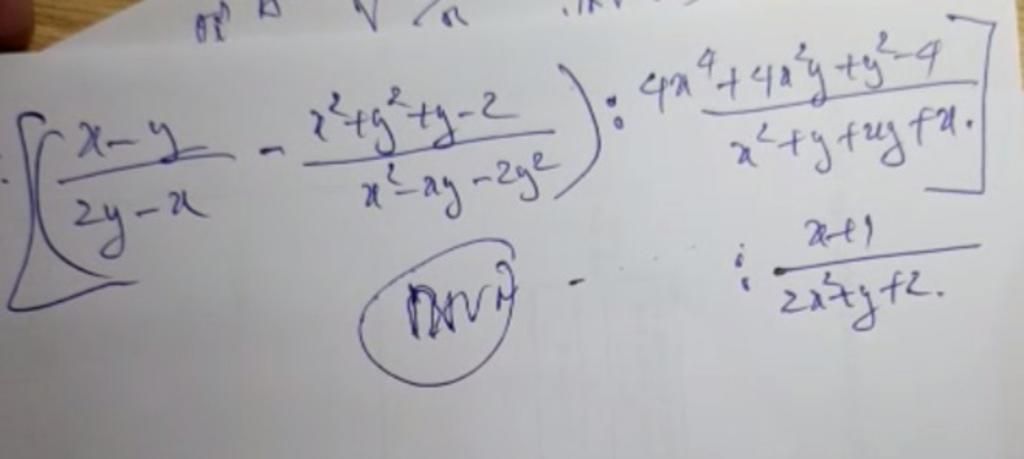 [((x-y)/(2y-x) - (x²+y²+y-2)/(x²-xy-2y²)) : (4x⁴+4x²y+y²-4)/(x²+y+xy+x)]
: (x+1)/(2x²+y+2)